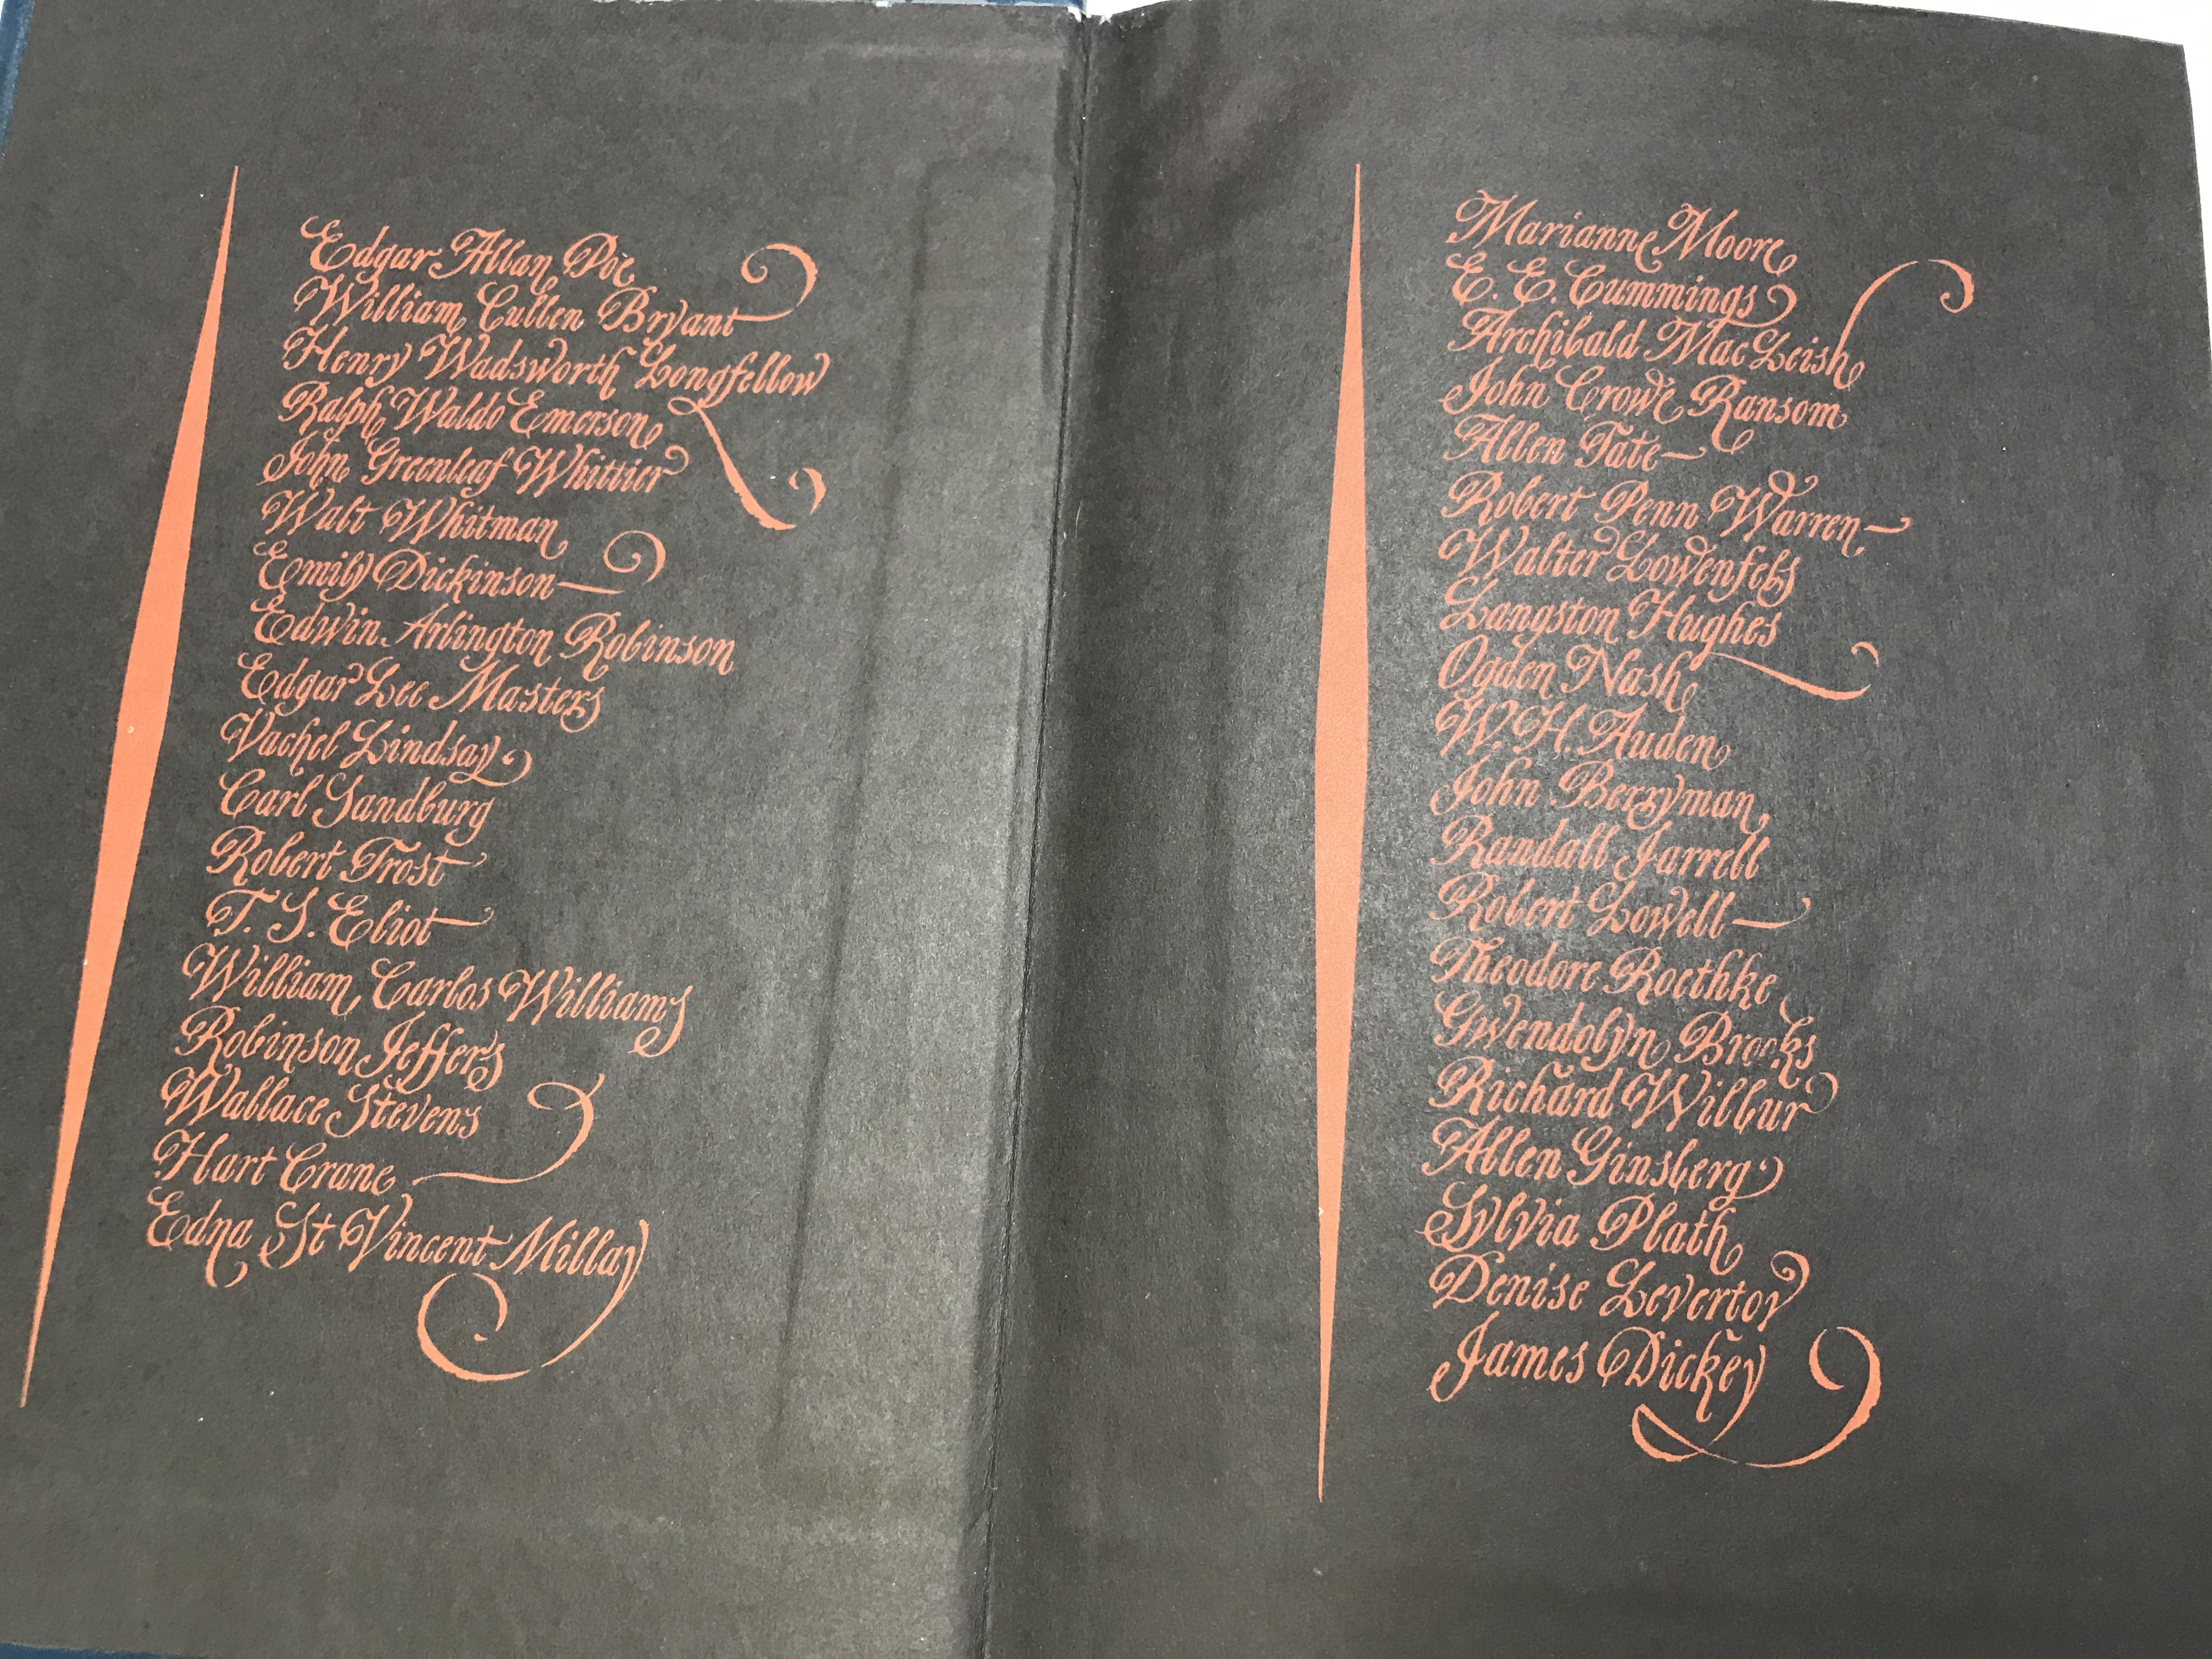 Edgar Allan Poe
William Cullen Bryant
Henry Wadsworth Longfellow
Ralph Waldo Emerson
John Greenleaf Whittier
Walt Whitman
Emily Dickinson
Edwin Arlington Robinson
Edgar Lee Masters
Vachel Lindsay
Carl Sandburg
Robert Frost
T. S. Eliot
William Carlos Williams
Robinson Jeffers
Wallace Stevens
Hart Crane
Edna St Vincent Millay
Marianne Moore
E. E. Cummings
Archibald MacLeish
John Crowe Ransom
Allen Tate
Robert Penn Warren
Walter Lowenfels
Langston Hughes
Ogden Nash
W. H. Auden
John Berryman
Randall Jarrell
Robert Lowell
Theodore Roethke
Gwendolyn Brooks
Richard Wilbur
Allen Ginsberg
Sylvia Plath
Denise Levertov
James Dickey